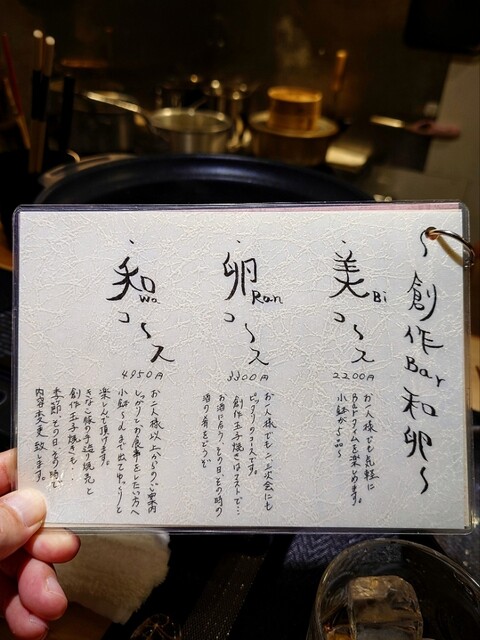 〜創作Bar和卵〜
美Biコース
2200円
お一人様でも気軽に
Barタイムを楽しめます。
小鉢が二品〜
卵Ranコース
3300円
お一人様でも、二次会にも
ピッタリのコースです。
創作玉子焼きはマストで…
お酒に合う、その日その時の
酒の肴をどうぞ
和waコース
4950円
お二人様以上からのご案内
しっかりとお食事をしたい方へ
小鉢〜〆まで出てゆっくりと
楽しんで頂けます。
きなこ豚の手造り焼売と
創作玉子焼きも…
季節、その日、その時で
内容変更致します。